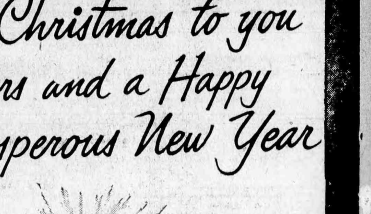 Christmas to you
rs and a Happy
sperous New Year